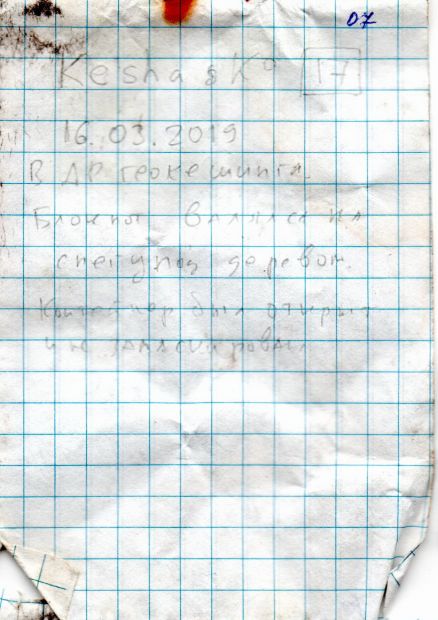 07
Kesha & K° 17
16.03.2019
В ДР геокешинга
Блокнот валялся на
снегу под деревом
Контейнер был открыт
и не замаскирован